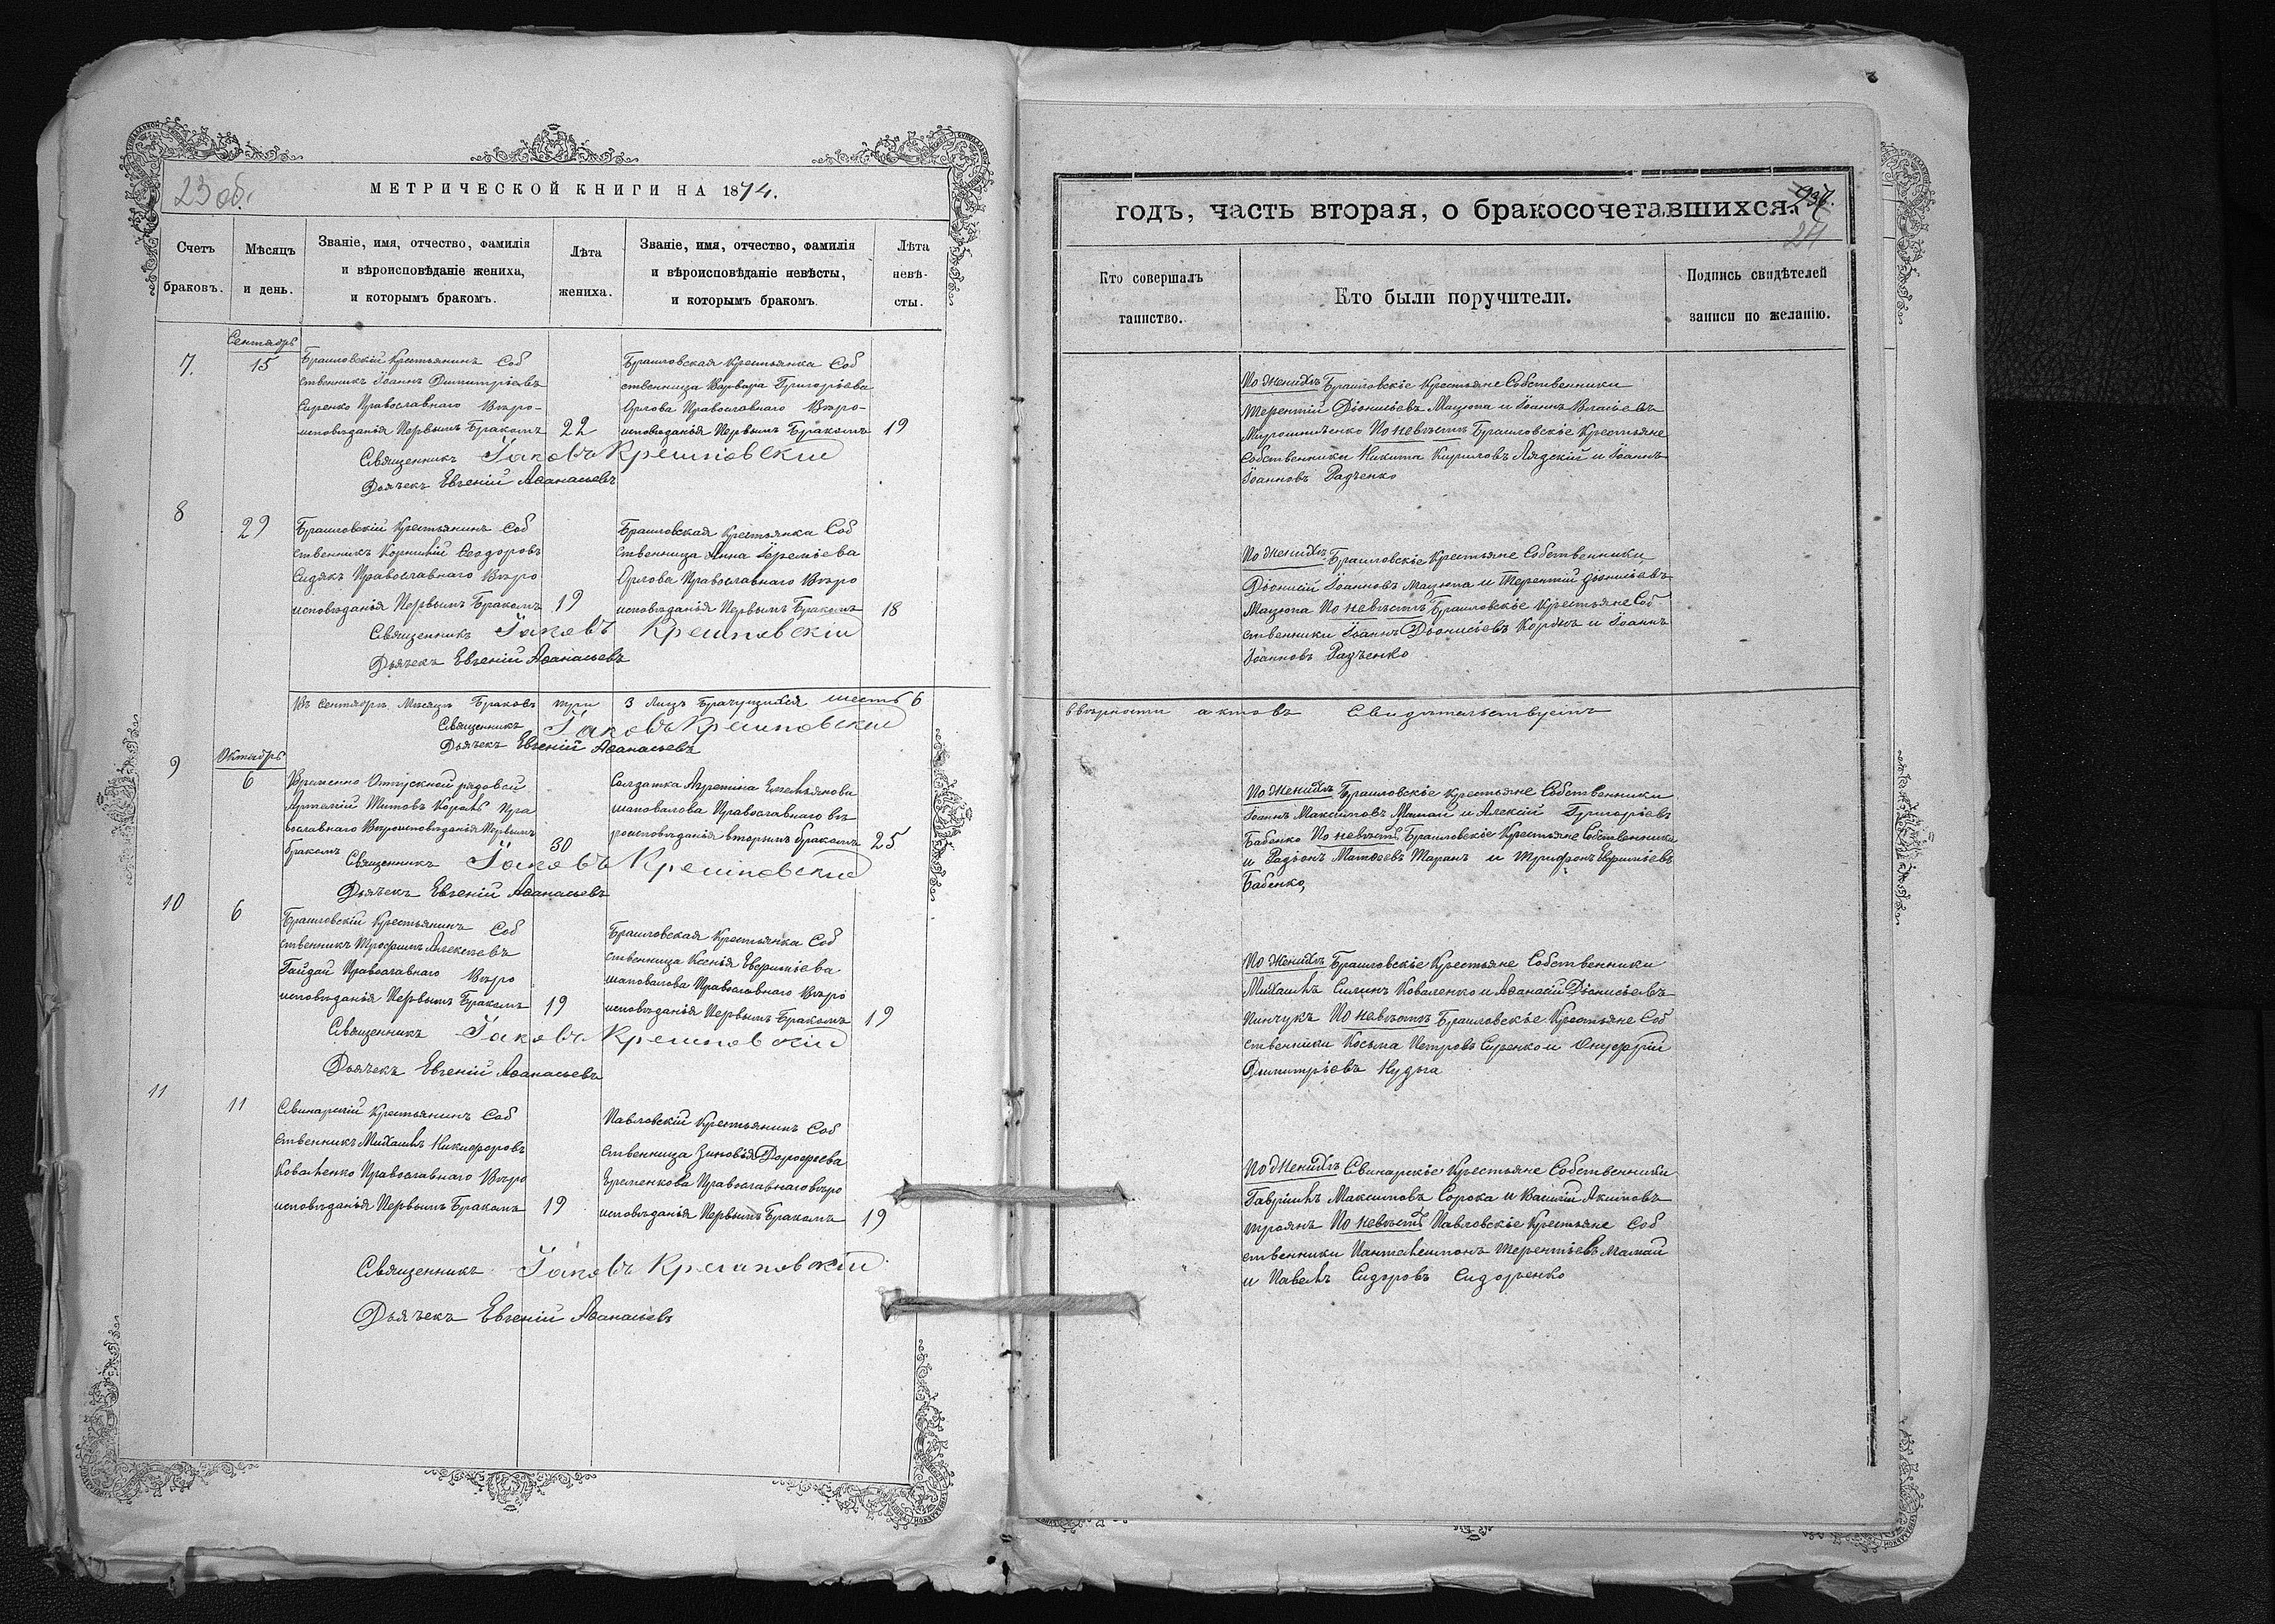 23 об.
МЕТРИЧЕСКОЙ КНИГИ НА 1874.
Счетъ браковъ.
Мѣсяцъ и день.
Званіе, имя, отчество, фамилія
и вѣроисповѣданіе жениха,
и которымъ бракомъ.
Лѣта жениха.
Званіе, имя, отчество, фамилія
и вѣроисповѣданіе невѣсты,
и которымъ бракомъ.
Лѣта невѣ-
сты.
7.
Сентябрь
15
Браиловскій Крестьянинъ Соб
ственникъ Іоаннъ Димитріевъ
Сиренко Православнаго Вѣро-
исповѣданія Первымъ Бракомъ
22
Браиловская Крестьянка Соб
ственница Варвара Григоріева
Орлова Православнаго Вѣро-
исповѣданія Первымъ Бракомъ
19
Священникъ Іаковъ
Дьячекъ Евгеній Аѳанасьевъ
8
29
Браиловскій Крестьянинъ Соб
ственникъ Корнилій Ѳеодоровъ
Сидякъ Православнаго Вѣро
исповѣданія Первымъ Бракомъ
19
Браиловская Крестьянка Соб
ственница Анна Іереміева
Орлова Православнаго Вѣро
исповѣданія Первымъ Бракомъ
18
Священникъ Іаковъ
Дьячекъ Евгеній Аѳанасьевъ
Въ Сентябрѣ Мѣсяцѣ Браковъ три 3 Лицъ шесть 6
Священникъ Іаковъ
Дьячекъ Евгеній Аѳанасьевъ
9
Октябрь
6
Временно Отпускной рядовой
Артемій Титовъ Король Пра
вославнаго Вѣроисповѣданія Первымъ
бракомъ
30
Солдатка Емельянова
Шаповалова Православнаго вѣ
роисповѣданія вторымъ бракомъ
25
Священникъ Іаковъ
Дьячекъ Евгеній Аѳанасьевъ
10
6
Браиловскій Крестьянинъ Соб
ственникъ Трофимъ Алексѣевъ
Гайдай Православнаго Вѣро
исповѣданія Первымъ Бракомъ
19
Браиловская Крестьянка Соб
ственница Ксенія Евфиміева
Шаповалова Православнаго Вѣро
исповѣданія Первымъ Бракомъ
19
Священникъ Іаковъ
Дьячекъ Евгеній Аѳанасьевъ
11
11
Свинарскій Крестьянинъ Соб
ственникъ Михаилъ Никифоровъ
Коваленко Православнаго Вѣро
исповѣданія Первымъ Бракомъ
19
Павловскій Крестьянинъ Соб
ственница Зиновія Дорофѣева
Еременкова Православнаго вѣро
исповѣданія Первымъ Бракомъ
19
Священникъ Іаковъ
Дьячекъ Евгеній Аѳанасьевъ
годъ, часть вторая, о бракосочетавшихся.
24
Кто совершалъ таинство.
Кто были поручители.
Подпись свидѣтелей
записи по желанію.
По Женихѣ Браиловскіе Крестьяне Собственники
Терентій Діонисіевъ Мацюпа и Іоаннъ Власіевъ
Мирошниченко По невѣстѣ Браиловскіе Крестьяне
Собственники Никита Кириловъ Лядскій и Іоаннъ
Іоанновъ Радченко
По Женихѣ Браиловскіе Крестьяне Собственники
Діонисій Іоанновъ Мацюпа и Терентій Діонисіевъ
Мацюпа По невѣстѣ Браиловскіе Крестьяне Соб
ственники Іоаннъ Діонисіевъ и Іоаннъ
Іоанновъ Радченко
вѣрности актовъ Свидѣтельствуетъ
По Женихѣ Браиловскіе Крестьяне Собственники
Іоаннъ Максимовъ Мамай и Алексій Григоріевъ
Бабенко По невѣстѣ Браиловскіе Крестьяне Собственники
и Радіонъ Матѳеевъ Таранъ и Трифонъ Евфиміевъ
Бабенко,
По Женихѣ Браиловскіе Крестьяне Собственники
Михаилъ Силинъ Коваленко и Аѳанасій Діонисіевъ
Пинчукъ По невѣстѣ Браиловскіе Крестьяне Соб
ственники Косьма Петровъ Сиренко и Онуфрій
Димитріевъ Нудьга
По Женихѣ Свинарскіе Крестьяне Собственники
Гавріилъ Максимовъ Сорока и Василій Акимовъ
Троянъ По невѣстѣ Павловскіе Крестьяне Соб
ственники Пантелеимонъ Терентіевъ Мамай
и Павелъ Сидоровъ Сидоренко